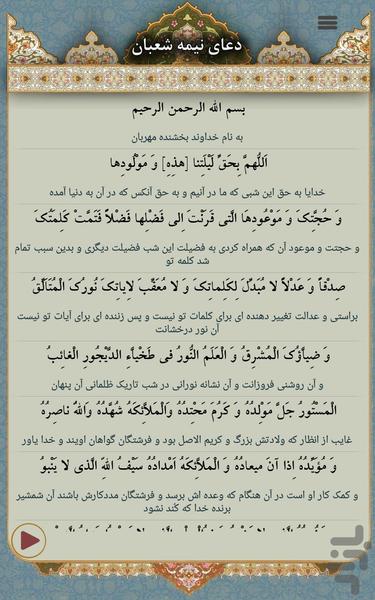 دعای نیمه شعبان
بسم الله الرحمن الرحیم
به نام خداوند بخشنده مهربان
اَللّهُمَّ بِحَقِّ لَیْلَتِنا [هذِهِ] وَ مَوْلُودِها
خدایا به حق این شبی که ما در آنیم و به حق آنکس که در آن به دنیا آمده
وَ حُجَّتِکَ وَ مَوْعُودِهَا الَّتی قَرَنْتَ اِلی فَضْلِها فَضْلاً فَتَمَّتْ کَلِمَتُکَ
و حجتت و موعود آن که همراه کردی به فضیلت این شب فضیلت دیگری و بدین سبب تمام
شد کلمه تو
صِدْقاً وَ عَدْلاً لا مُبَدِّلَ لِکَلِماتِکَ وَ لا مُعَقِّبَ لِایاتِکَ نُورُکَ الْمُتَاَلِّقُ
براستی و عدالت تغییر دهنده ای برای کلمات تو نیست و پس زننده ای برای آیات تو نیست
آن نور درخشانت
وَ ضِیاَّؤُکَ الْمُشْرِقُ وَ الْعَلَمُ النُّورُ فی طَخْیاَّءِ الدَّیْجُورِ الْغائِبُ
و آن روشنی فروزانت و آن نشانه نورانی در شب تاریک ظلمانی آن پنهان
الْمَسْتُورُ جَلَّ مَوْلِدُهُ وَ کَرُمَ مَحْتِدُهُ وَالْمَلاَّئِکَهُ شُهَّدُهُ وَاللَّهُ ناصِرُهُ
غایب از انظار که ولادتش بزرگ و کریم الاصل بود و فرشتگان گواهان اویند و خدا یاور
وَ مُؤَیِّدُهُ اِذا آنَ میعادُهُ وَ الْمَلاَّئِکَهُ اَمْدادُهُ سَیْفُ اللَّهِ الَّذی لا یَنْبوُ
و کمک کار او است در آن هنگام که وعده اش برسد و فرشتگان مددکارش باشند آن شمشیر
برنده خدا که کُند نشود
بازار